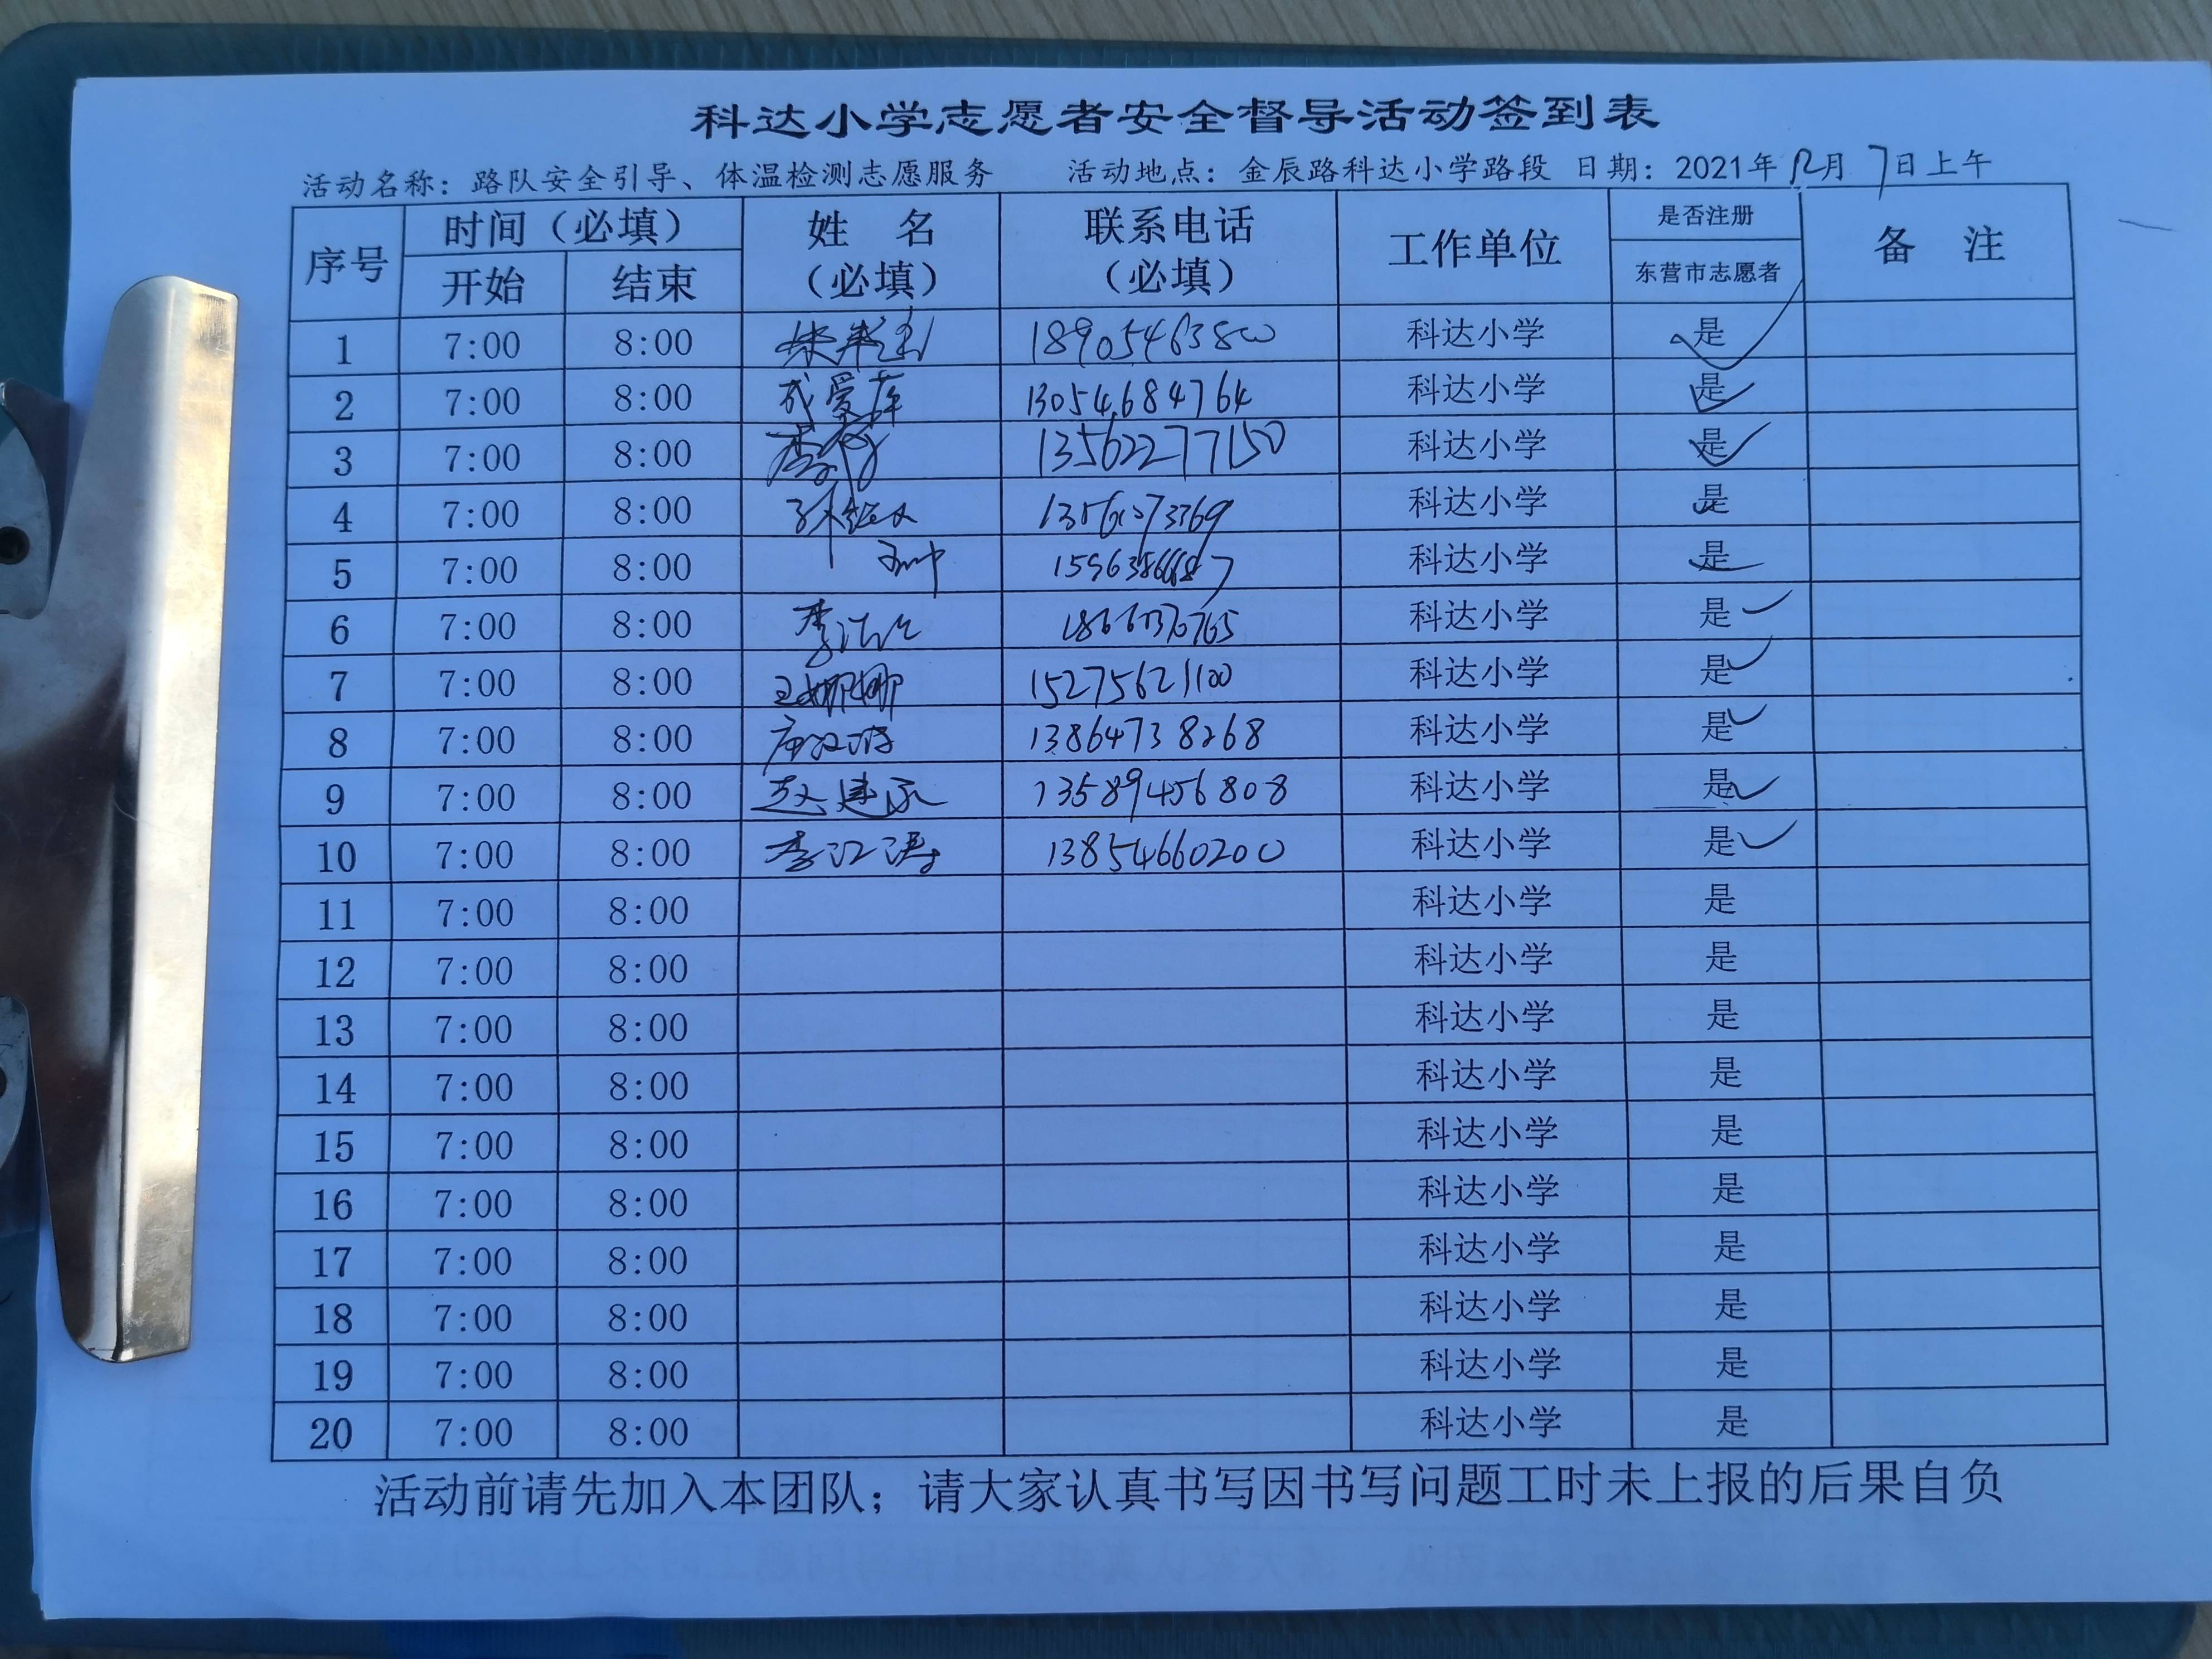 科达小学志愿者安全督导活动签到表
活动名称：路队安全引导、体温检测志愿服务 活动地点：金辰路科达小学路段 日期：2021年12月7日上午
序号 时间（必填） 姓 名（必填） 联系电话（必填） 工作单位 是否注册 备 注
开始 结束 东营市志愿者
1 7:00 8:00 18905463800 科达小学 是
2 7:00 8:00 成爱萍 13054684764 科达小学 是
3 7:00 8:00 13562277150 科达小学 是
4 7:00 8:00 科达小学 是
5 7:00 8:00 科达小学 是
6 7:00 8:00 科达小学 是
7 7:00 8:00 王娜娜 15275621100 科达小学 是
8 7:00 8:00 13864738268 科达小学 是
9 7:00 8:00 13589456808 科达小学 是
10 7:00 8:00 李江涛 13854660200 科达小学 是
11 7:00 8:00 科达小学 是
12 7:00 8:00 科达小学 是
13 7:00 8:00 科达小学 是
14 7:00 8:00 科达小学 是
15 7:00 8:00 科达小学 是
16 7:00 8:00 科达小学 是
17 7:00 8:00 科达小学 是
18 7:00 8:00 科达小学 是
19 7:00 8:00 科达小学 是
20 7:00 8:00 科达小学 是
活动前请先加入本团队；请大家认真书写因书写问题工时未上报的后果自负